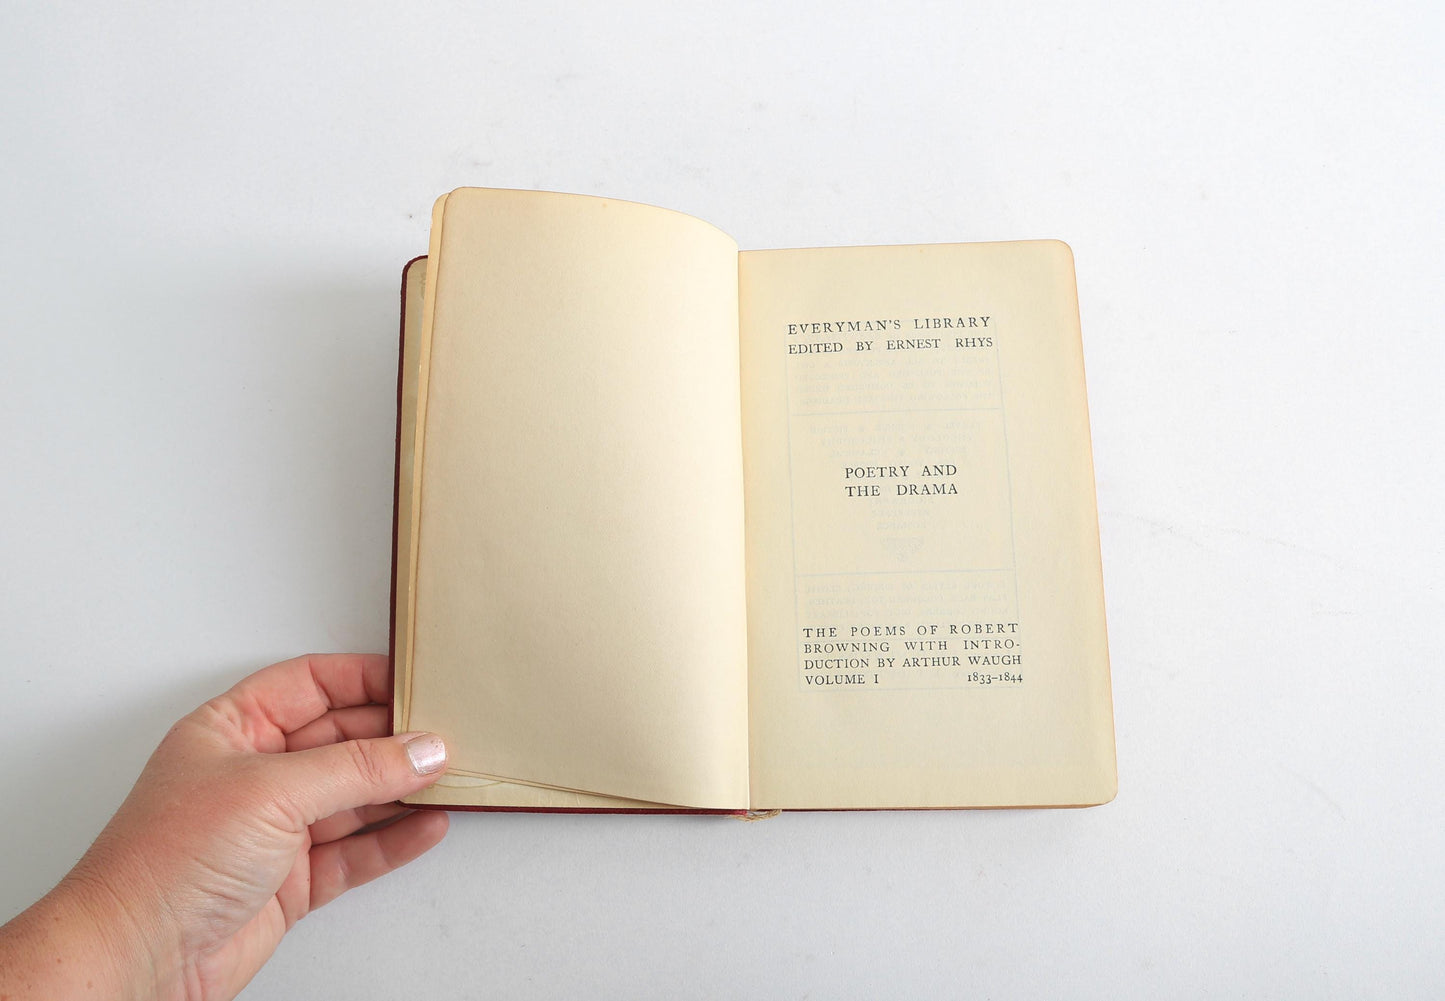 EVERYMAN'S LIBRARY
EDITED BY ERNEST RHYS
POETRY AND
THE DRAMA
THE POEMS OF ROBERT
BROWNING WITH INTRO-
DUCTION BY ARTHUR WAUGH
VOLUME I 1833-1844